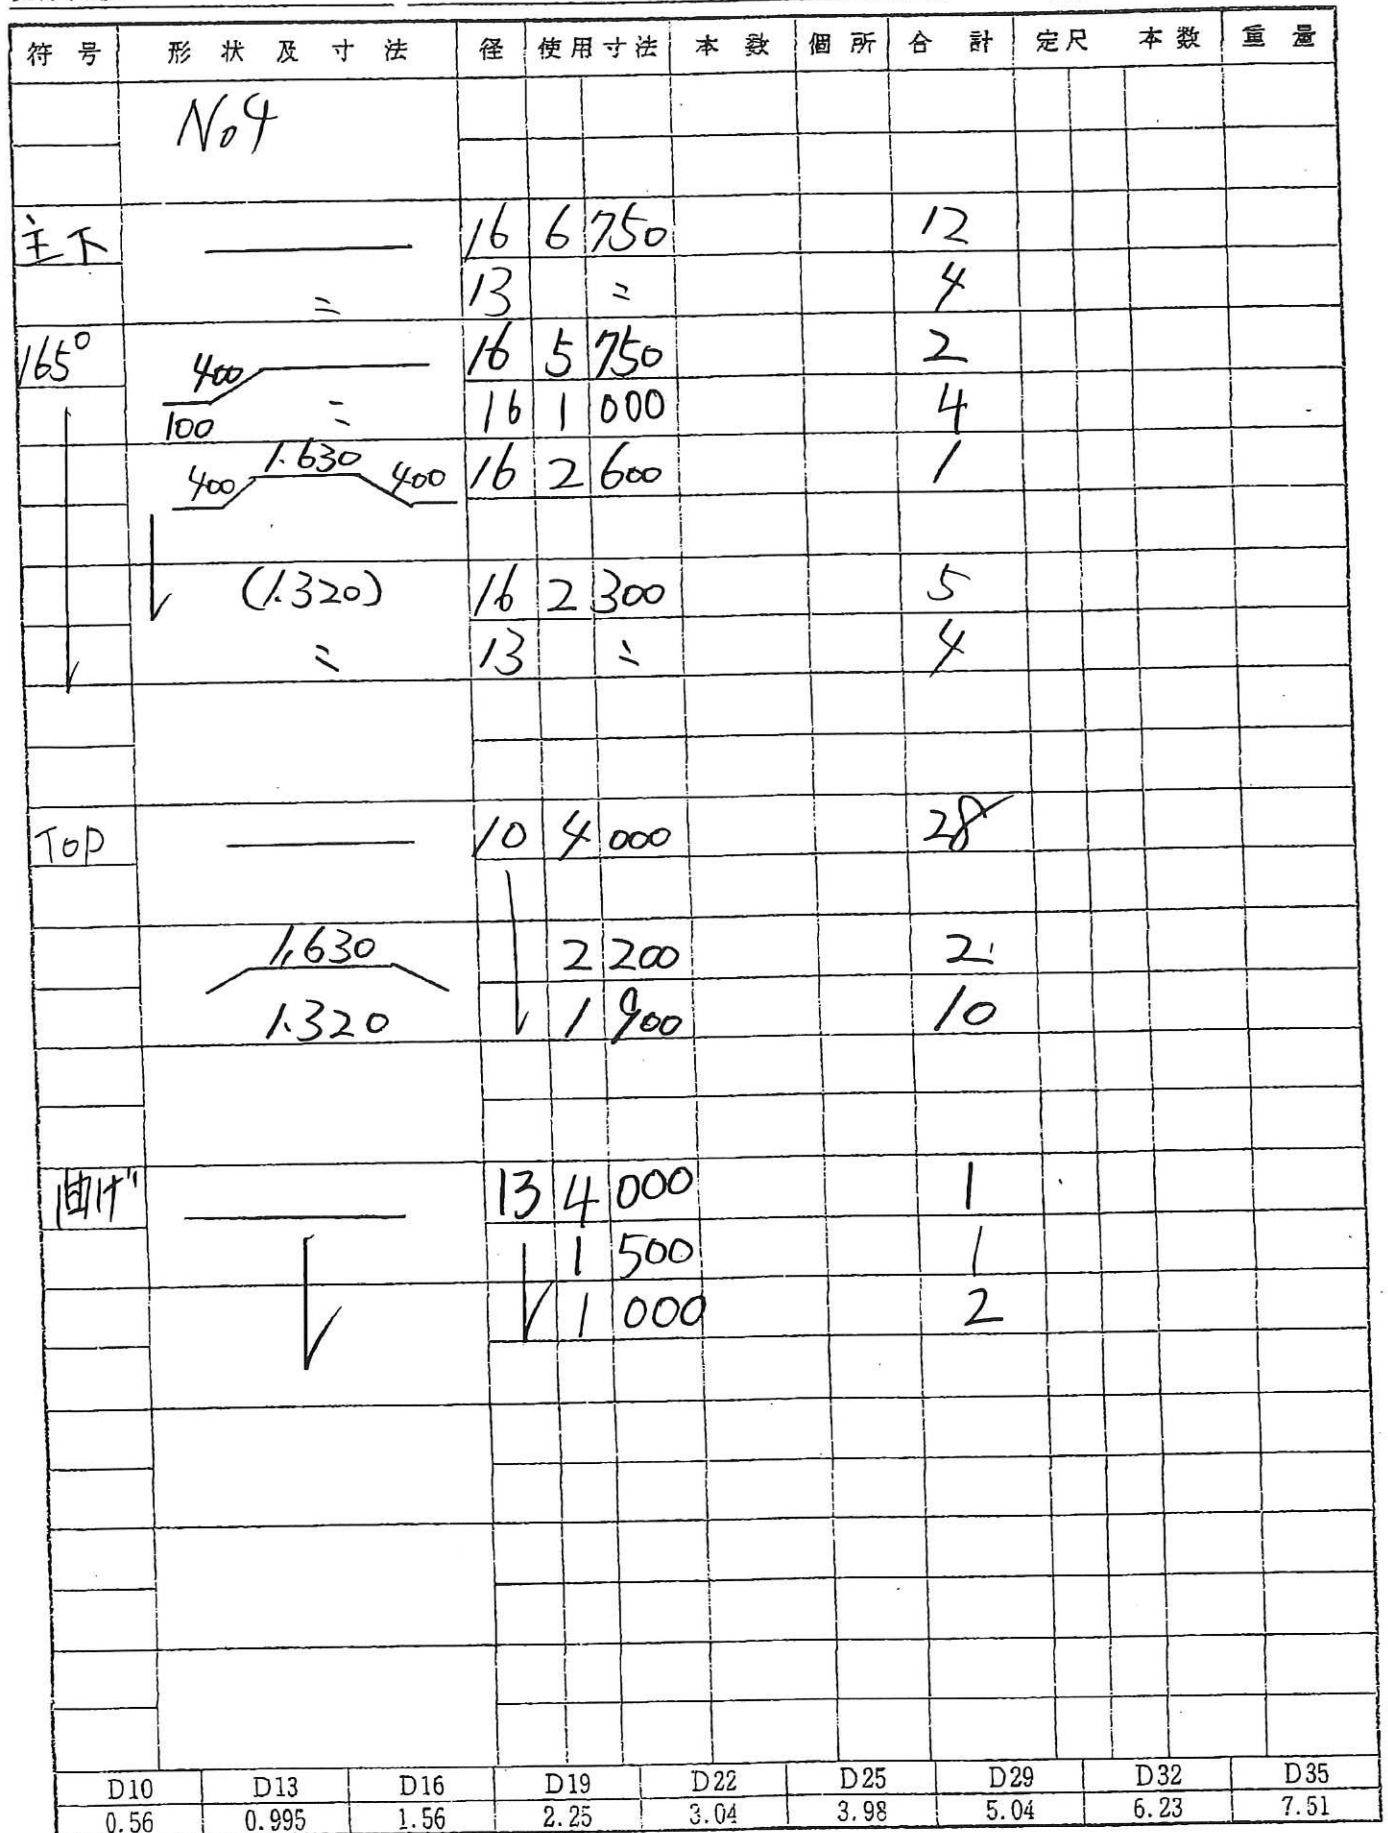 符号 形状及寸法 径 使用寸法 本数 個所 合計 定尺 本数 重量
No4
主下 16 6 750 12
〃 13 〃 4
165° 400 16 5 750 2
100 〃 16 1 000 4
400 1.630 400 16 2 600 1
(1.320) 16 2 300 5
〃 13 〃 4
TOP 10 4 000 28
1,630 2 200 2
1.320 1 900 10
曲げ 13 4 000 1
1 500 1
1 000 2
D10 D13 D16 D19 D22 D25 D29 D32 D35
0.56 0.995 1.56 2.25 3.04 3.98 5.04 6.23 7.51